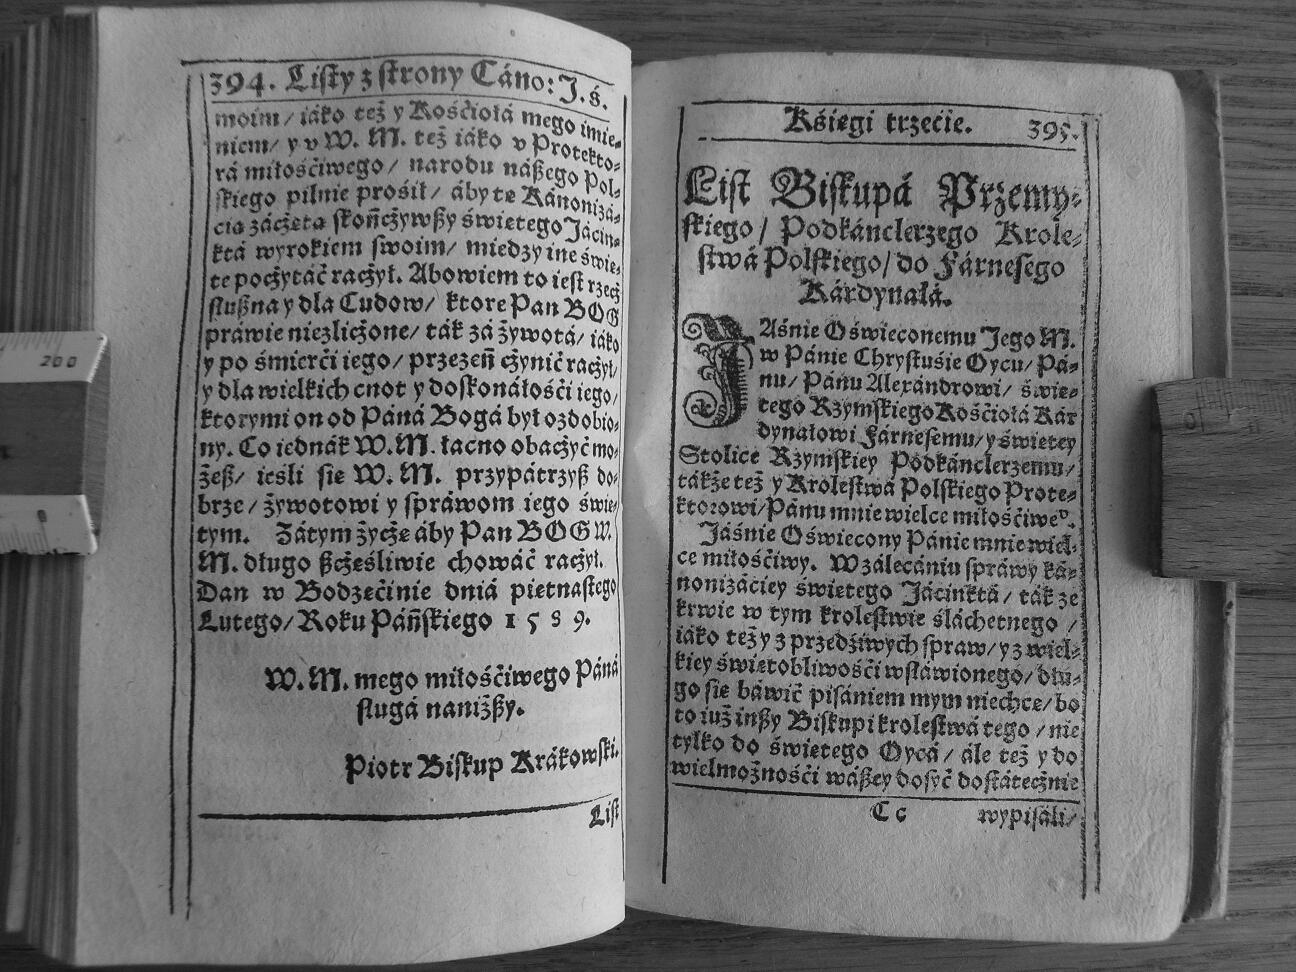 394. Listy z strony Cáno: J. ś.
moim / iáko też y Kośćiołá mego imie-
niem / y v W. M. też iáko v Protekto-
rá miłośćiwego / narodu nászego Pol-
skiego pilnie prośił / áby te Kánonizá-
cia záczęta skończywszy świetego Jácin-
ktá wyrokiem swoim / miedzy ine świe-
te poczytáć raczył. Abowiem to iest rzecz
słuszna y dla Cudow / ktore Pan BOG
práwie niezliczone / ták zá żywotá / iáko
y po śmierći iego / przezeń czynić raczył /
y dla wielkich cnot y doskonáłośći iego /
ktorymi on od Páná Bogá był ozdobio-
ny. Co iednák W. M. łacno obaczyć mo-
żesz / ieśli sie W. M. przypátrzysz do-
brze / żywotowi y spráwom iego świe-
tym. Zátym życze áby Pan BOG W.
M. długo szcześliwie chowáć raczył.
Dan w Bodzećinie dniá pietnastego
Lutego / Roku Páńskiego 1 5 8 9.
W. M. mego miłośćiwego Páná
sługá naniższy.
Piotr Biskup Krákowski.
List
Kśięgi trzećie. 395.
List Biskupá Przemy-
skiego / Podkánclerzego Krole-
stwá Polskiego / do Fárnesego
Kárdynałá.
JAśnie Oświeconemu Jego M.
w Pánie Chrystuśie Oycu / Pá-
nu / Pánu Alexándrowi / świe-
tego Rzymskiego Kośćiołá Kár
dynałowi Fárnesemu / y świetey
Stolice Rzymskiey Podkánclerzemu /
tákże też y Krolestwá Polskiego Prote-
ktorowi / Pánu mnie wielce miłośćiweº.
Jáśnie Oświecony Pánie mnie wiel-
ce miłośćiwy. W zálecániu spráwy ká-
nonizáciey świetego Jácinktá / ták ze
krwie w tym krolestwie śláchetnego /
iáko też y z przedźiwych spraw / y z wiel-
kiey świetobliwośći wsławionego / dłu-
go sie báwić pisániem mym niechce / bo
to iuż inszy Biskupi krolestwá tego / nie
tylko do świetego Oycá / ále też y do
wielmożnośći wászey dosyć dostátecznie
C c wypisáli /